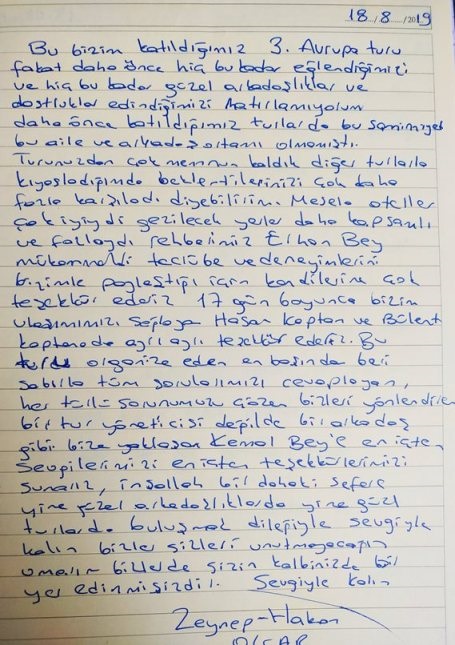 18../8../2019
Bu bizim katıldığımız 3. Avrupa turu
fakat daha önce hiç bu kadar eğlendiğimizi
ve hiç bu kadar güzel arkadaşlıklar ve
dostluklar edindiğimizi hatırlamıyorum
daha önce katıldığımız turlarda bu samimiyet
bu aile ve arkadaş ortamı olmamıştı.
Turunuzdan çok memnun kaldık diğer turlarla
kıyasladığımda beklentilerimizi çok daha
fazla karşıladı diyebilirim. Mesela oteller
çok iyiydi gezilecek yerler daha kapsamlı
ve fazlaydı rehberimiz Erhan Bey
mükemmeldi tecrübe ve deneyimlerini
bizimle paylaştığı için kendilerine çok
teşekkür ederiz 17 gün boyunca bizim
ulaşımımızı sağlaya Hasan Kaptan ve Bülent
kaptanada ayrı ayrı teşekkür ederiz. Bu
organize eden en başından beri
sabırla tüm sorularımızı cevaplayan,
her türlü sorunumuzu çözen bizleri yönlendiren
bir tur yöneticisi değilde bir arkadaş
gibi bize yaklaşan Kemal Bey'e en içten
sevgilerimizi en içten teşekkürlerimizi
sunarız, inşallah bir dahaki sefere
yine güzel arkadaşlıklarda yine güzel
turlarda buluşmak dileğiyle sevgiyle
kalın bizler sizleri unutmayacağız
umarım bizlerde sizin kalbinizde bir
yer edinmişizdir. Sevgiyle kalın
Zeynep-Hakan